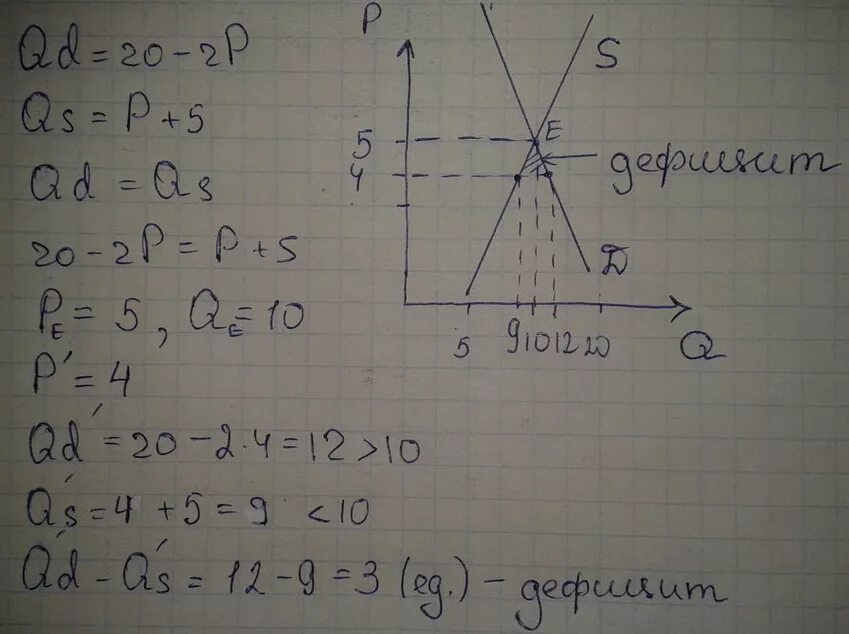 Qd = 20 - 2P
Qs = P + 5
Qd = Qs
20 - 2P = P + 5
P_E = 5, Q_E = 10
P' = 4
Qd' = 20 - 2·4 = 12 > 10
Q's = 4 + 5 = 9 < 10
Q'd - Q's = 12 - 9 = 3 (ед.) - дефицит
P
S
5
E
4
дефицит
D
5 9 10 12 20
Q